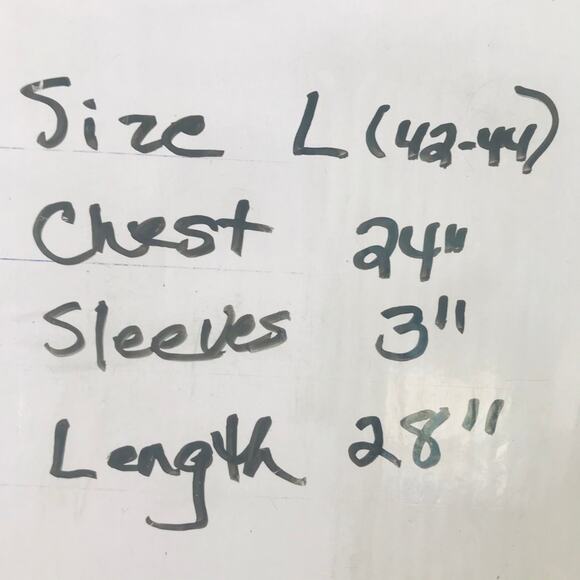 Size L (42-44)
Chest 24"
Sleeves 3"
Length 28"